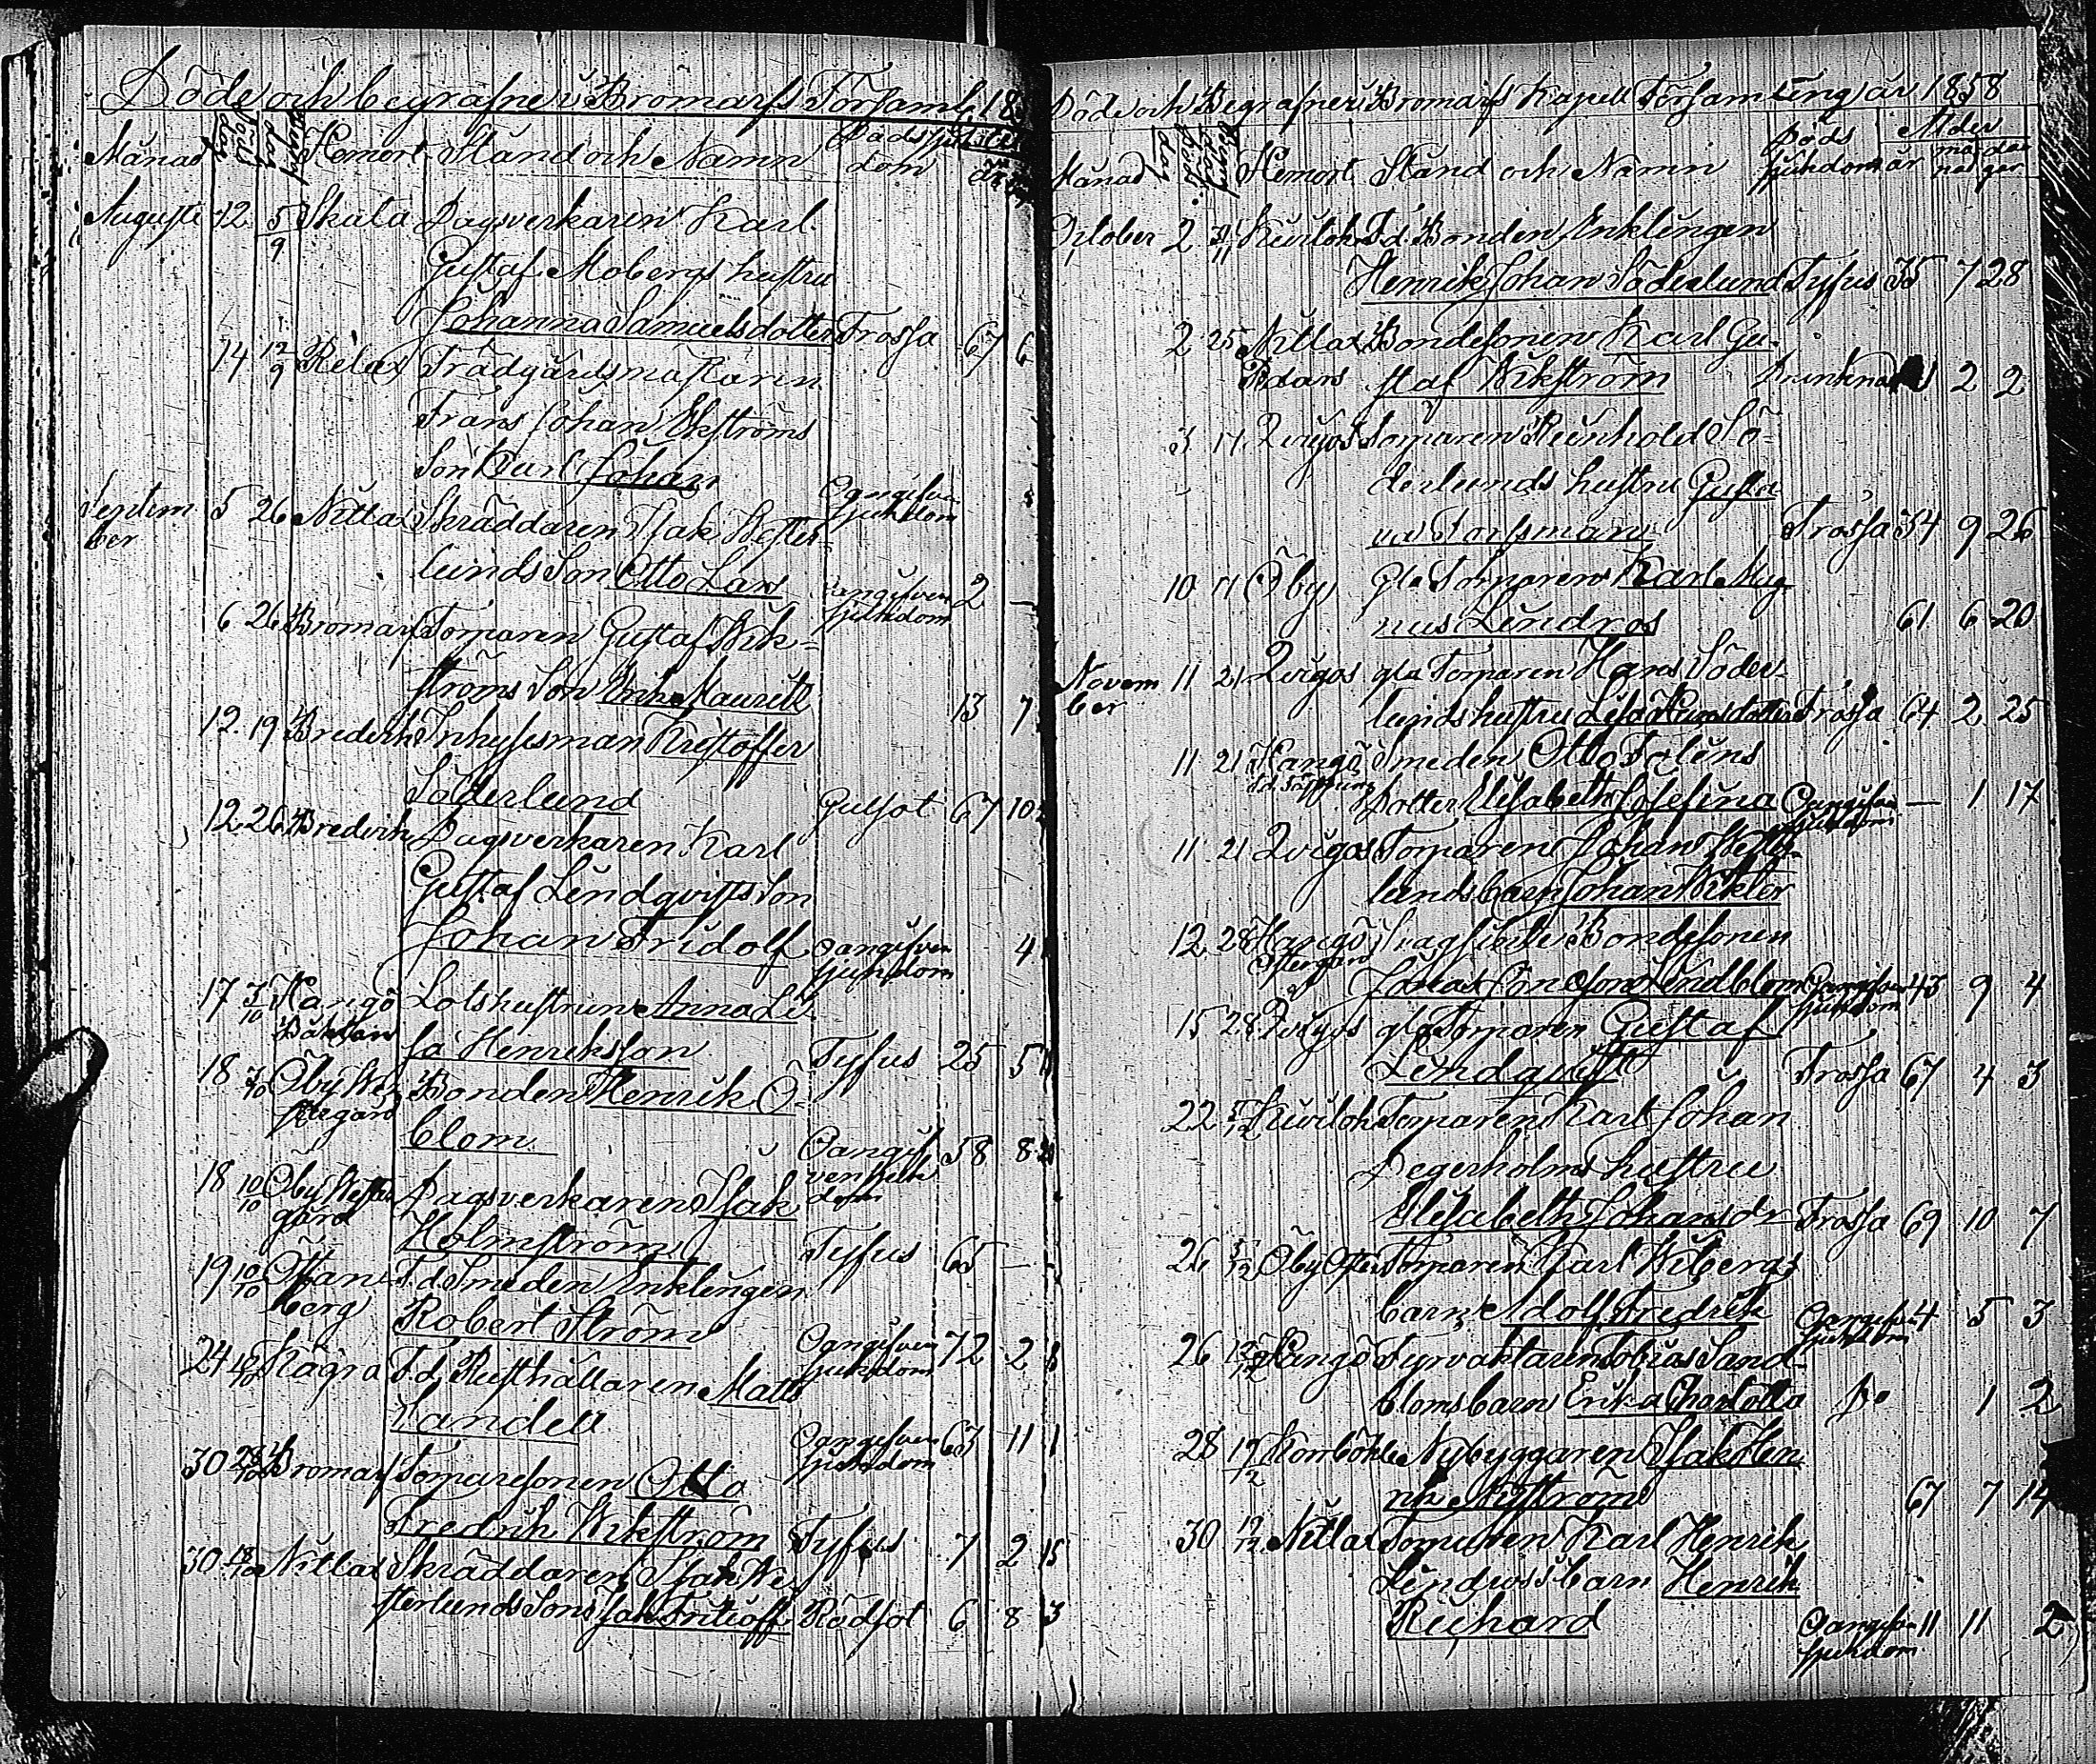 Döde och begrafne i Bromarfs Församl. 18
Månad Hemort Stånd och Namn Dödssjukdom år
Augusti 12 5/9 Skata Dagsverkaren Karl
Gustaf Mobergs hustru
Johanna Samuelsdotter Frossa 67 6
14 12/9 Rilax Trädgårdsmästaren
Frans Johan Ekströms
Son Karl Johan Oangifven sjukdom
September 5 26 Nitlax Skräddaren Isak Wester-
lunds Son Otto Lars oangifven sjukdom 2 —
6 26 Bromarf Torparen Gustaf Wik-
ströms Son Mauritz 13 7
12 19 Bredvik Inhysesman Kristoffer
Söderlund Gulsot 67 10
12 26 Bredvik Dagsverkaren Karl
Gustaf Lindqvists Son
Johan Fridolf oangifven sjukdom 4
17 3/10 Hangö Lotshustrun Anna Li-
Bäktan sa Henriksson Tyfus 25 5
18 3/10 Öby We- Bonden Henrik Ö-
stergård blom Oangifven sjukdom 58 8
18 10/10 Öby Wester- Dagsverkaren Isak
gård Holmström Tyfus 65 —
19 10/10 F.d. Smeden Enklingen
berg Robert Ström Oangifven sjukdom 72 2
24 Kägra F.d. Rusthållaren Matts
Sandell Oangifven sjukdom 63 11 1
30 Bromarf Torparesonen Otto
Fredrik Wikström Tyfus 7 2 15
30 Nitlax Skräddaren Isak We-
sterlunds Son Isak Fritioff Rödsot 6 8 3
Döde och Begrafne i Bromarfs Kapell Församling år 1858
Månad Hemort Stånd och Namn Döds sjukdom Ålder år månader dagar
Oktober 2 F.d. Bonden Enklingen
Henrik Johan Söderlund Tyfus 35 7 28
2 25 Nitlax Bondesonen Karl Gu-
staf Wikström Drunknad 2 2
3 17 Qvigos Torparen Reinhold Sö-
derlunds hustru Gusta-
va Forssman Frossa 54 9 26
10 17 Öby gla Torparen Karl Mag-
nus Lindros 61 6 20
November 11 21 Qvigos gla Torparen Hans Söder-
lunds hustru Lisa Frossa 64 2 25
11 21 Hangö Smeden Otto Taléns
Dotter Elisabeth Josefina Oangifven sjukdom — 1 17
11 21 Qvigos Torparen Johan Wester-
lunds barn Johan Wiktor
12 28 Hangö Bondesonen
Östergård Jonas Jönsson Lindblom Oangifven sjukdom 43 9 4
15 28 Qvigos gla Torparen Gustaf
Lindqvist Frossa 67 4 3
22 5/12 Torparen Karl Johan
Degerholms hustru
Elisabeth Johansdr Frossa 69 10 7
26 5/12 Öby Öster Torparen Karl Wibergs
barn Adolf Fredrik Oangifven sjukdom 4 5 3
26 12/12 Hangö Fyrvaktaren Tobias Sand-
bloms barn Erika Charlotta Do 1 2
28 19/12 Nybyggaren Isak Hen-
rik Nyström 67 7 14
30 19/12 Nitlax Torparen Karl Henrik
Lindross barn Henrik
Richard Oangifven sjukdom 11 11 2